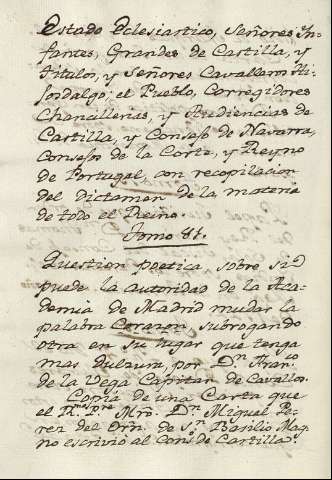 Estado Eclesiastico, Señores In-
fantes, Grandes de Castilla, y
titulos, y Señores Cavalleros Hi-
josdalgo; el Pueblo, Corregidores
Chancillerias, y Audiencias de
Castilla, y Consejo de Navarra,
Consejos de la Corte, y Reyno
de Portugal, con recopilacion
del dictamen de la materia
de todo el Reino.
Tomo 81.
Question poetica, sobre si
puede la autoridad de la Aca-
demia de Madrid mudar la
palabra Corazon, subrogando
otra en su lugar que tenga
mas dulzura, por Dn. Franco.
de la Vega Capitan de Cavallos.
Copia de una Carta que
el Mro. Dn. Miguel Pe-
rez del Orn. de Sn. Basilio Mag-
no escrivió al Cons. de Castilla.